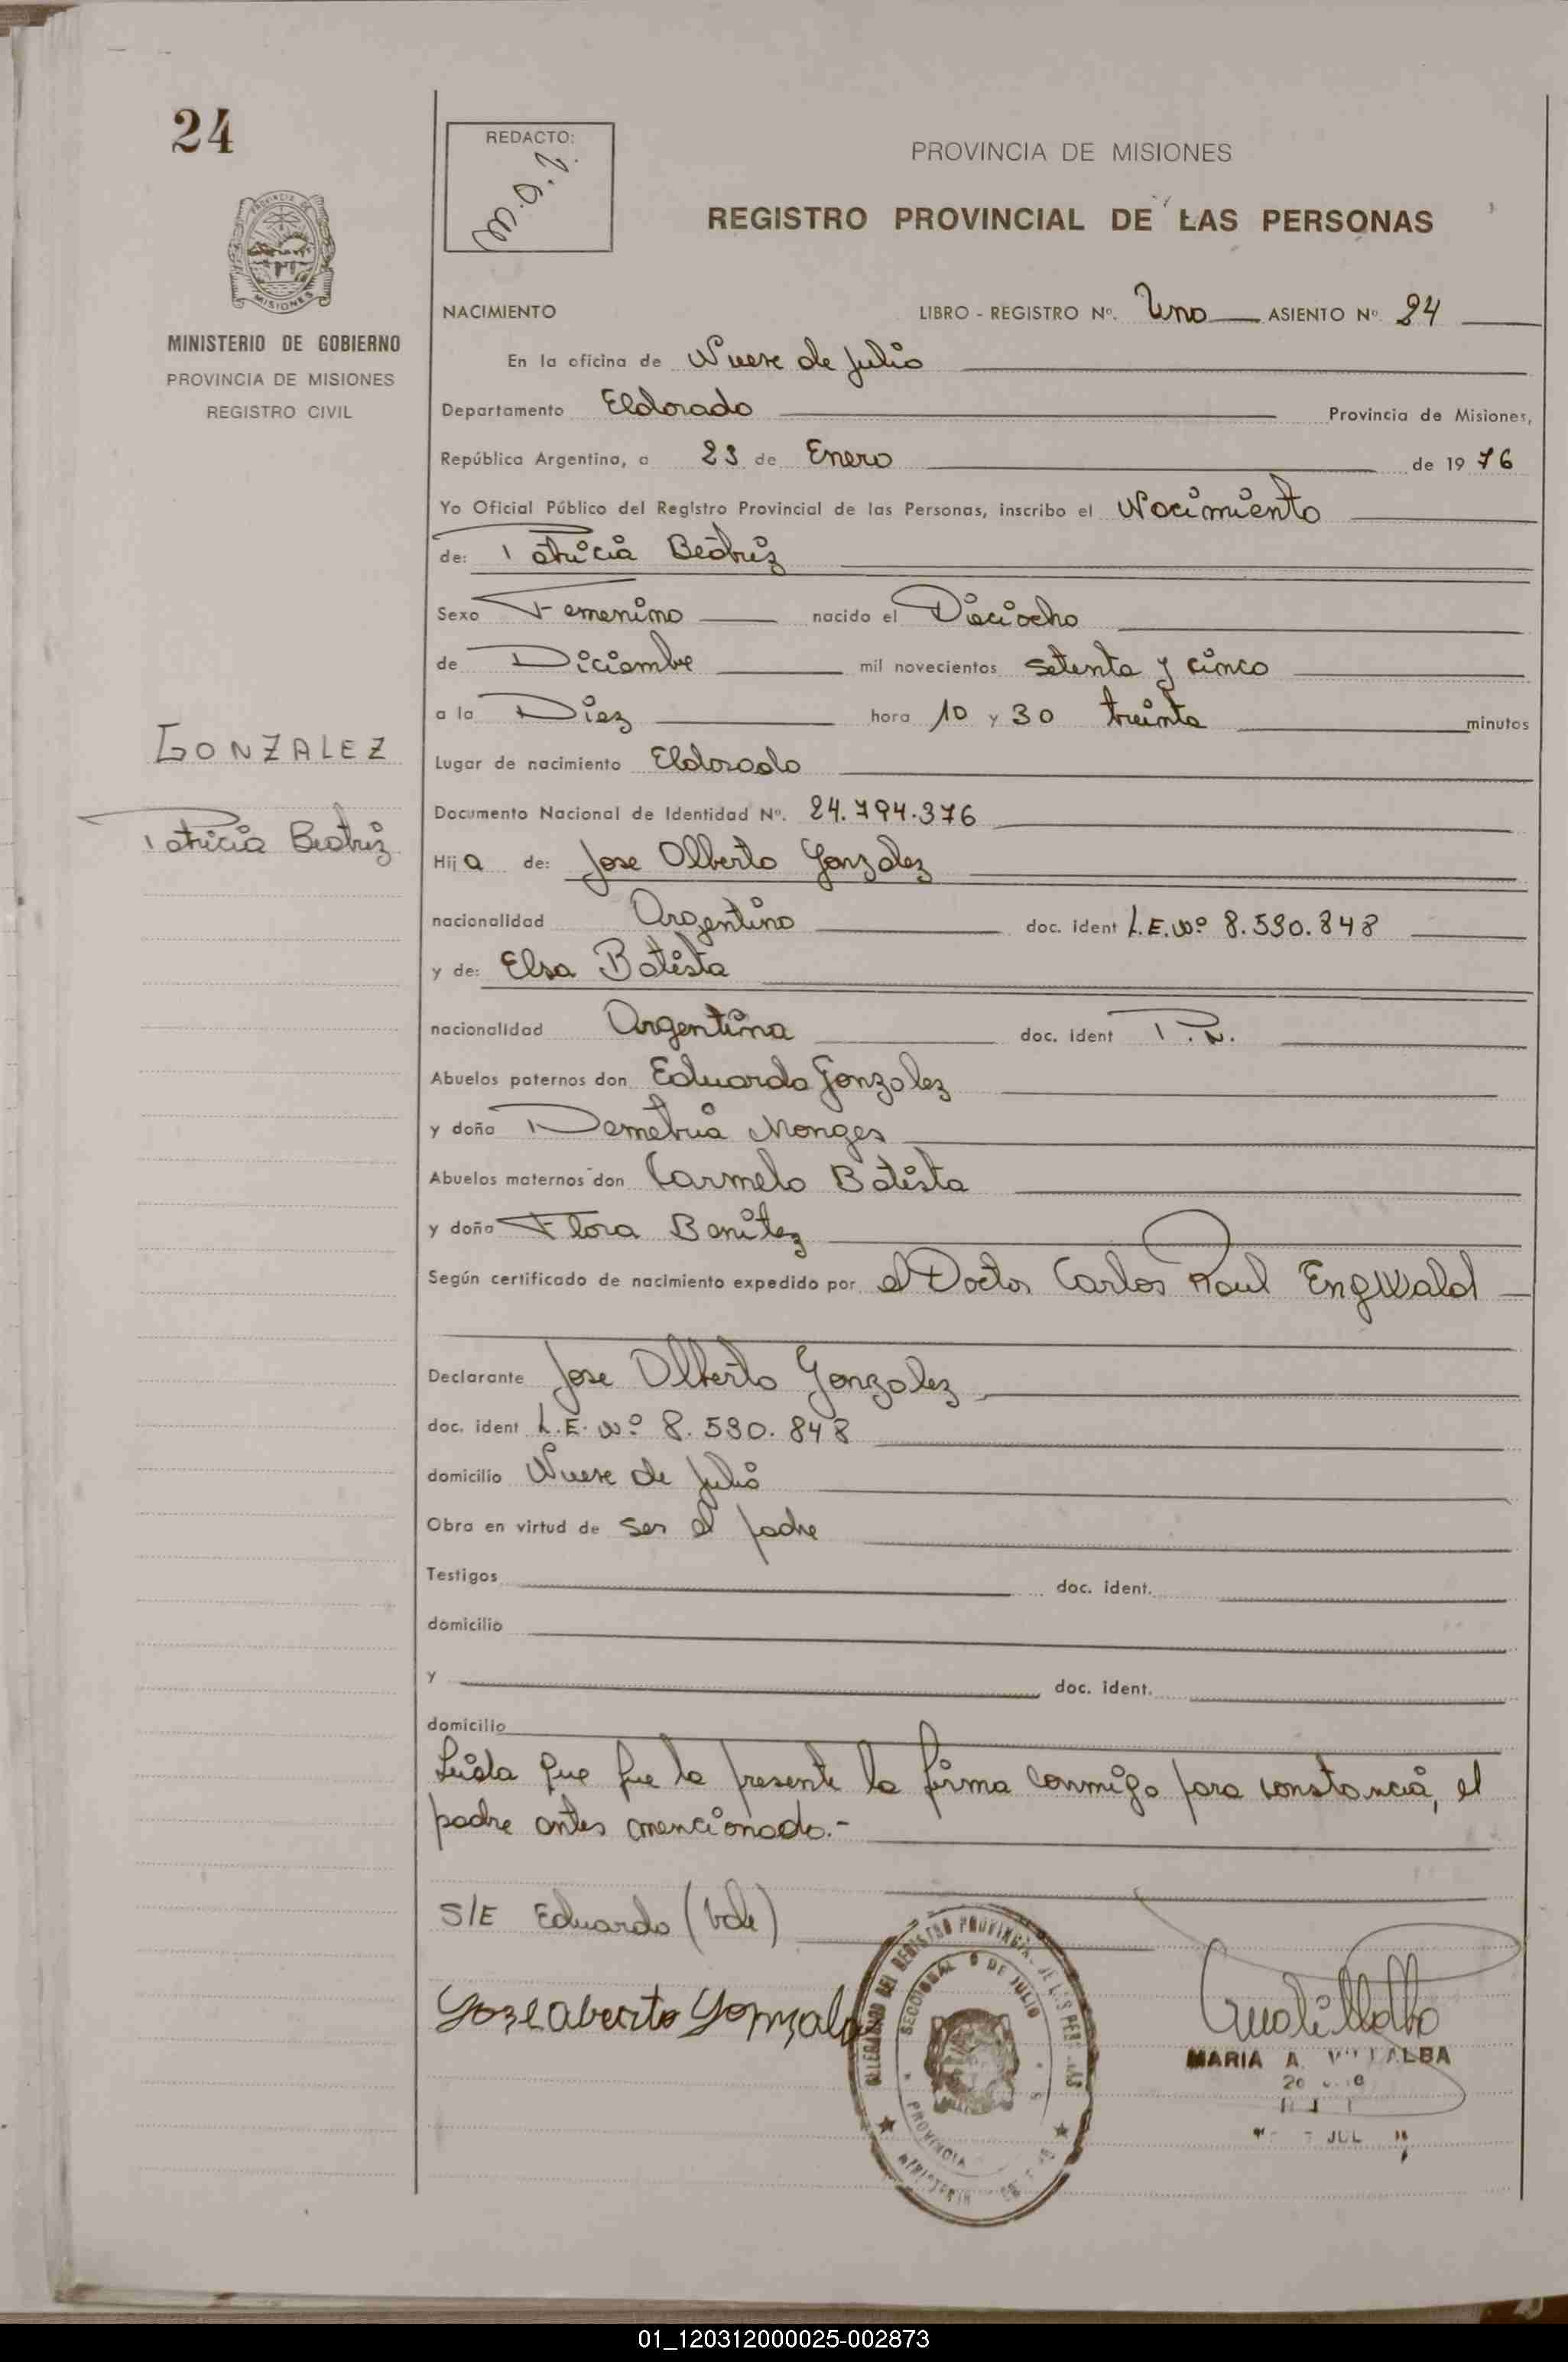 24
REDACTO:
PROVINCIA DE MISIONES
REGISTRO PROVINCIAL DE LAS PERSONAS
MISIONES
MINISTERIO DE GOBIERNO
PROVINCIA DE MISIONES
REGISTRO CIVIL
NACIMIENTO LIBRO - REGISTRO Nº. Uno ASIENTO Nº. 24
En la oficina de Nueve de Julio
Departamento Eldorado Provincia de Misiones,
República Argentina, a 23 de Enero de 1976
Yo Oficial Público del Registro Provincial de las Personas, inscribo el Nacimiento
de: Patricia Beatriz
Sexo Femenino nacido el Dieciocho
de Diciembre mil novecientos setenta y cinco
a la Diez hora 10 y 30 treinta minutos
GONZALEZ
Patricia Beatriz
Lugar de nacimiento Eldorado
Documento Nacional de Identidad Nº. 24.794.376
Hija de: Jose Alberto Gonzalez
nacionalidad Argentino doc. ident L.E.Nº 8.530.848
y de: Elsa Batista
nacionalidad Argentina doc. ident
Abuelos paternos don Eduardo Gonzalez
y doña Demetria Monges
Abuelos maternos don Carmelo Batista
y doña Flora Benitez
Según certificado de nacimiento expedido por el Doctor Carlos Raul Engwald
Declarante Jose Alberto Gonzalez
doc. ident L.E. Nº 8.530.848
domicilio Nueve de Julio
Obra en virtud de ser el padre
Testigos doc. ident.
domicilio
y doc. ident.
domicilio
Leida que fue la presente la firma conmigo para constancia, el
padre antes mencionado.-
S/E Eduardo (Vale)
SECCIONAL 9 DE JULIO
PROVINCIA
MARIA A. VILLALBA
JUL
01_120312000025-002873